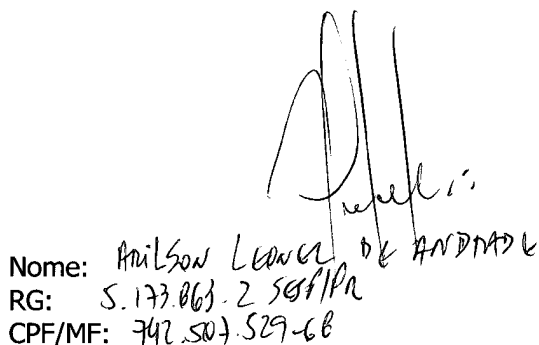 Nome: ARILSON LEONEL DE ANDRADE
RG: 5.173.863.2 SESP/PR
CPF/MF: 742.507.529-68